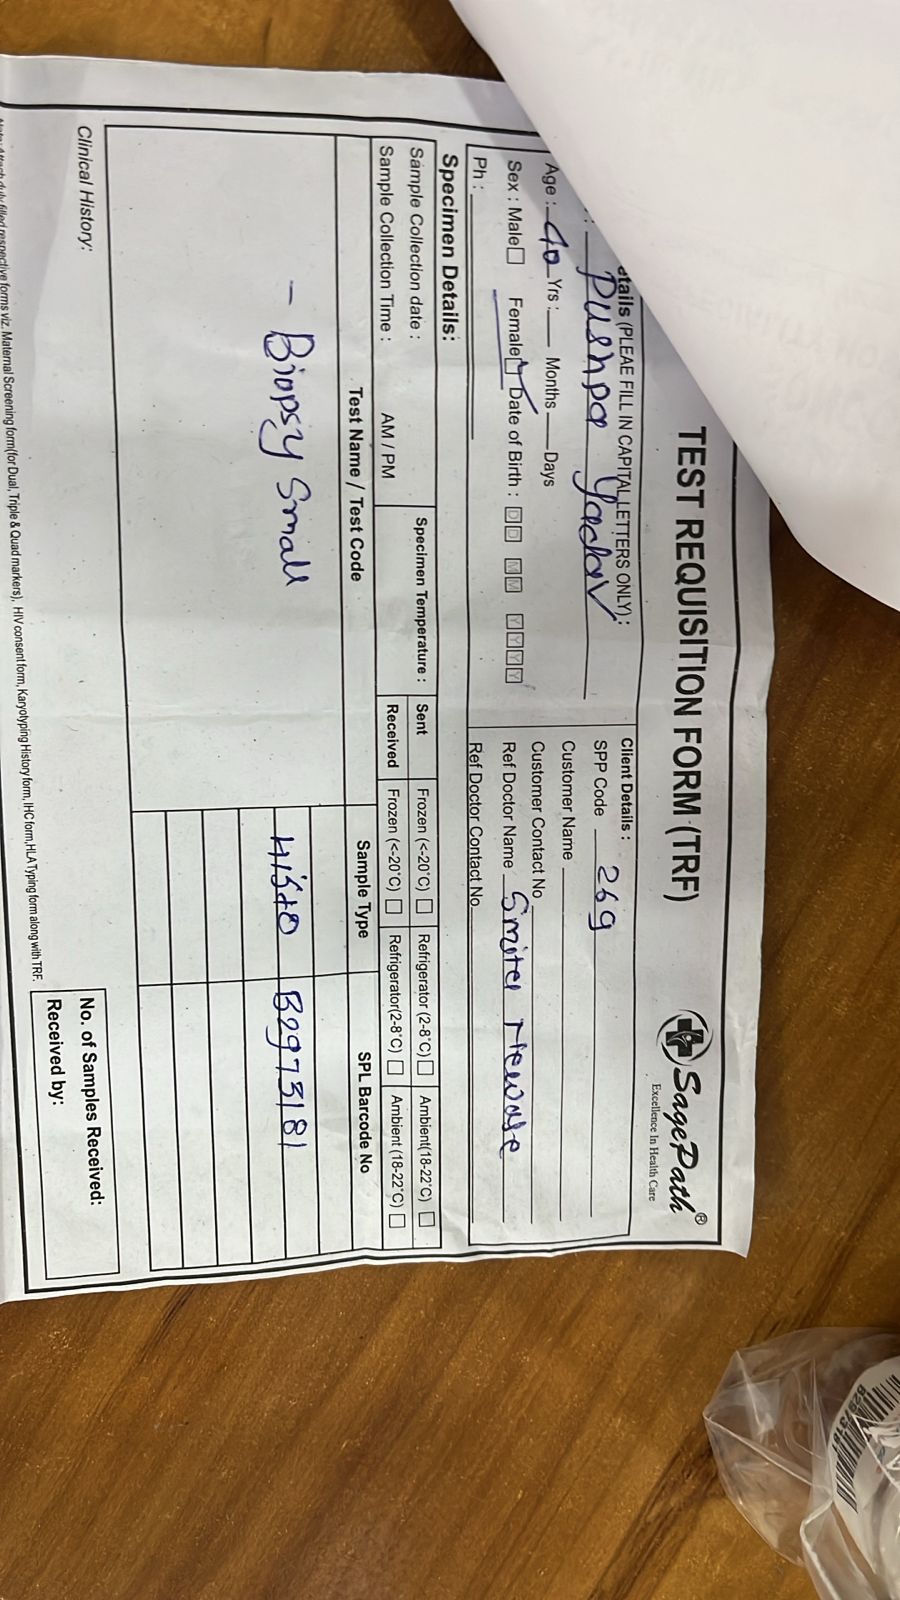 TEST REQUISITION FORM (TRF)
SagePath®
Excellence In Health Care
etails (PLEAE FILL IN CAPITAL LETTERS ONLY):
: Pushpa Yadav
Age : 40 Yrs : Months Days
Sex : Male Female Date of Birth : D D M M Y Y Y Y
Ph :
Client Details :
SPP Code 269
Customer Name
Customer Contact No
Ref Doctor Name Smita
Ref Doctor Contact No
Specimen Details:
Sample Collection date :
Sample Collection Time : AM / PM
Specimen Temperature :
Sent Frozen (<-20°C) Refrigerator (2-8°C) Ambient(18-22°C)
Received Frozen (<-20°C) Refrigerator(2-8°C) Ambient (18-22°C)
Test Name / Test Code Sample Type SPL Barcode No
- Biopsy Small Histo B2973181
Clinical History:
No. of Samples Received:
Received by:
Note: Attach duly filled respective forms viz. Maternal Screening form(for Dual, Triple & Quad markers), HIV consent form, Karyotyping History form, IHC form,HLA Typing form along with TRF.